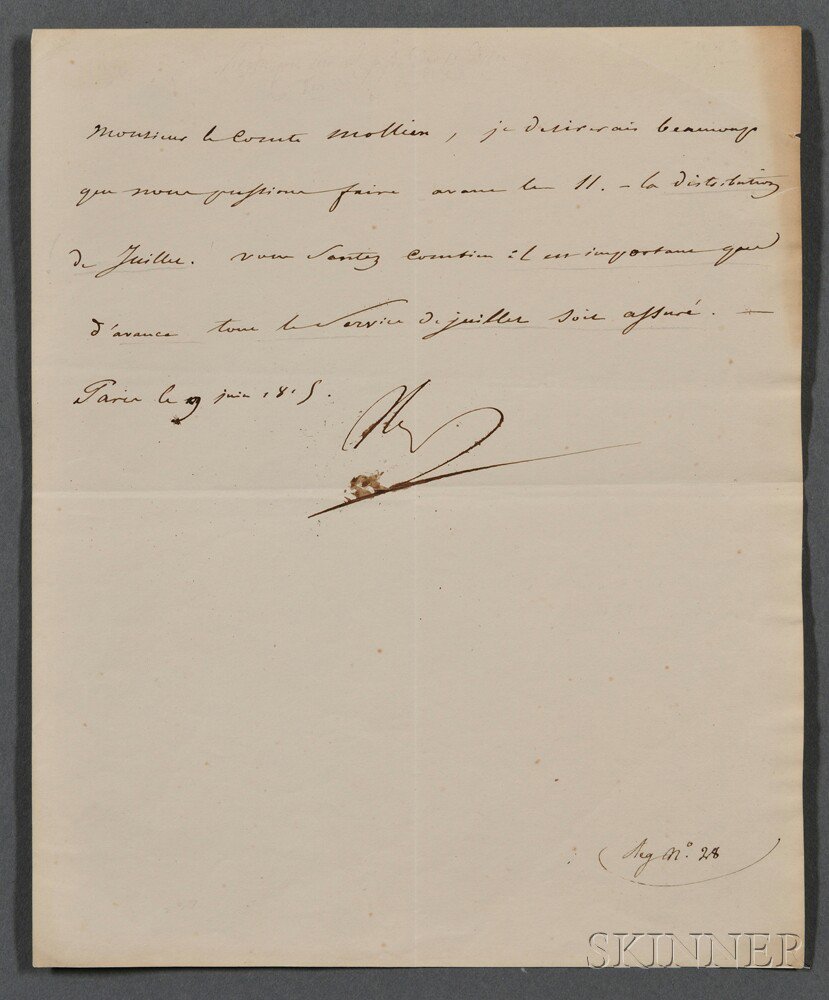 Monsieur le Comte Mollien, je desirerais beaucoup
que nous pussions faire avant le 11. - la distribution
de Juillet. vous sentez combien il est important que
d'avance tout le service de juillet soit assuré. —
Paris le 9 juin 1815.
Reg Nº 28
SKINNER